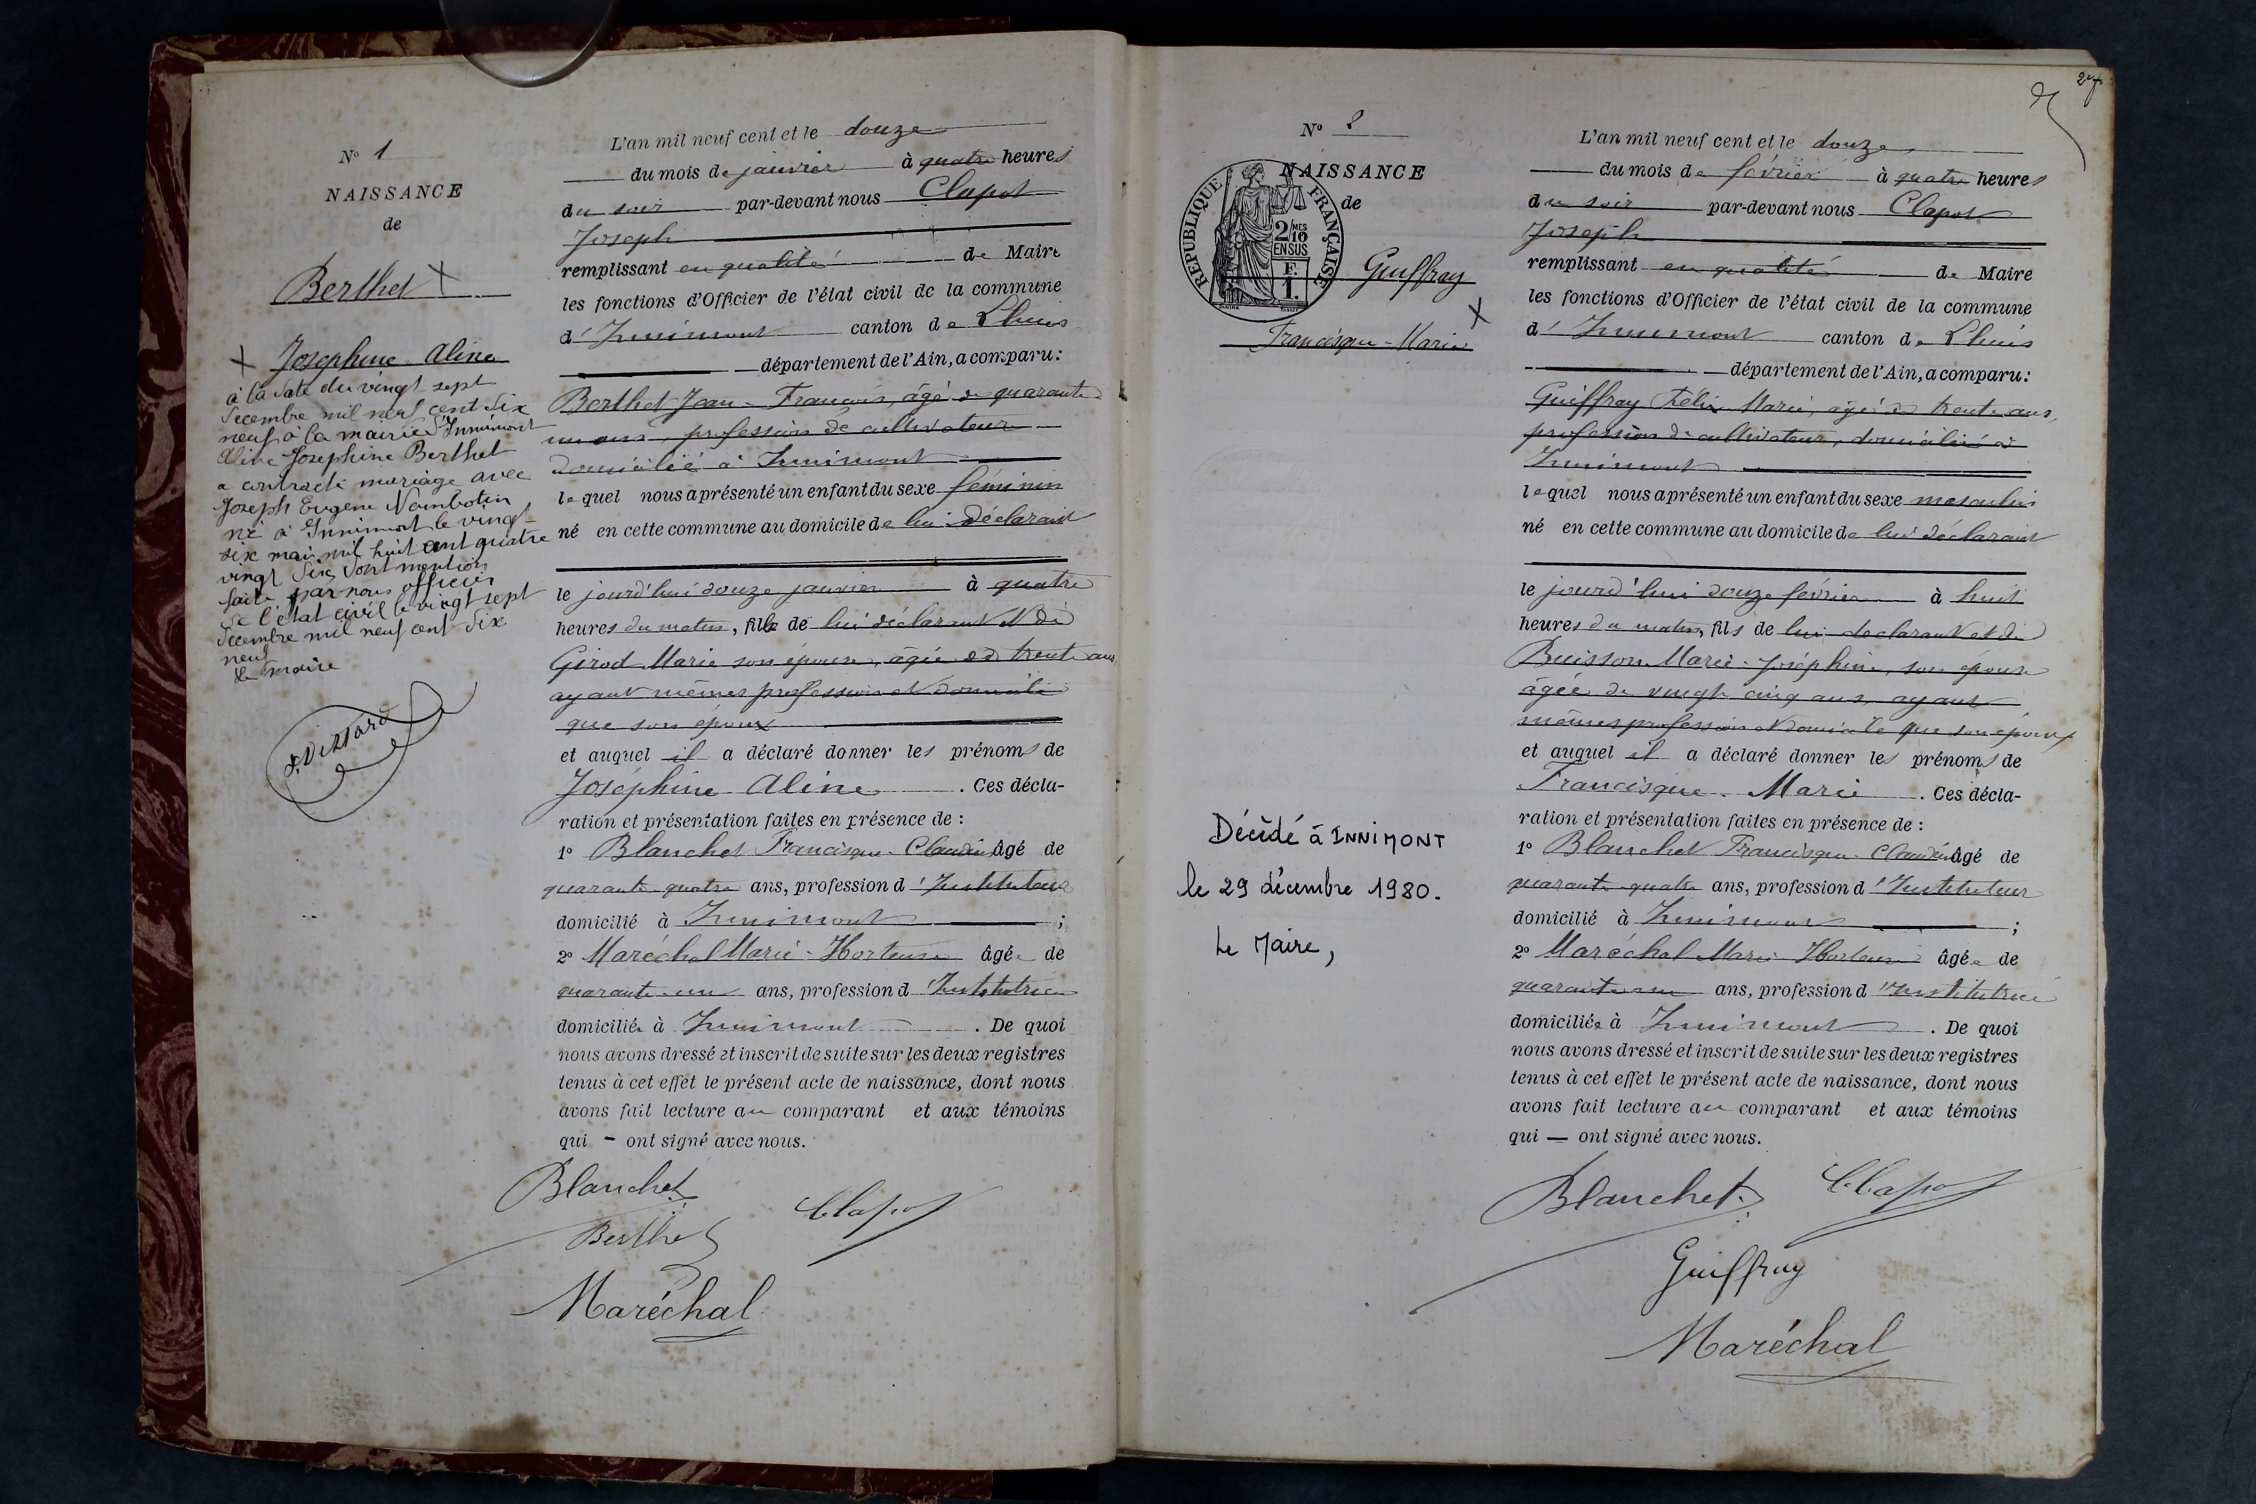 N° 1
NAISSANCE
de
Berthet
Joséphine Aline
à la date du vingt sept
décembre mil neuf cent dix
neuf, à la mairie d'Innimont
Aline Joséphine Berthet
a contracté mariage avec
Joseph Eugène
né à Innimont le vingt
six mai mil huit cent quatre
vingt six, dont mention
faite par nous officier
de l'état civil le vingt sept
décembre mil neuf cent dix
neuf
Le maire
L'an mil neuf cent et le douze
du mois de janvier à quatre heures
du soir par-devant nous Clapot
Joseph
remplissant en qualité de Maire
les fonctions d'Officier de l'état civil de la commune
d'Innimont canton de Lhuis
département de l'Ain, a comparu:
Berthet Jean-François, âgé de quarante
un ans, profession de cultivateur
domicilié à Innimont
lequel nous a présenté un enfant du sexe féminin
né en cette commune au domicile de lui déclarant
le jourd'hui douze janvier à quatre
heures du matin, fille de lui déclarant et de
Girod Marie son épouse, âgée de trente ans
ayant mêmes profession et domicile
que son époux
et auquel il a déclaré donner les prénoms de
Joséphine Aline. Ces décla-
ration et présentation faites en présence de :
1° Blanchet Francisque-Claudius âgé de
quarante-quatre ans, profession d'Instituteur
domicilié à Innimont ;
2° Maréchal Marie-Hortense âgée de
quarante-un ans, profession d'Institutrice
domiciliée à Innimont. De quoi
nous avons dressé et inscrit de suite sur les deux registres
tenus à cet effet le présent acte de naissance, dont nous
avons fait lecture au comparant et aux témoins
qui - ont signé avec nous.
Blanchet
Clapot
Berthet
Maréchal
27
N° 2
NAISSANCE
de
RÉPUBLIQUE FRANÇAISE
2/10 MES
EN SUS
F.
1.
Guiffray
Francisque-Marie
Décédé à INNIMONT
le 29 décembre 1980.
Le Maire,
L'an mil neuf cent et le douze
du mois de février à quatre heures
du soir par-devant nous Clapot
Joseph
remplissant en qualité de Maire
les fonctions d'Officier de l'état civil de la commune
d'Innimont canton de Lhuis
département de l'Ain, a comparu:
Guiffray Félix Marie, âgé de trente ans,
profession de cultivateur, domicilié à
Innimont
lequel nous a présenté un enfant du sexe masculin
né en cette commune au domicile de lui déclarant
le jourd'hui douze février à huit
heures du matin, fils de lui déclarant et de
Buisson Marie-Joséphine, son épouse
âgée de vingt cinq ans, ayant
mêmes profession et domicile que son époux
et auquel il a déclaré donner les prénoms de
Francisque-Marie. Ces décla-
ration et présentation faites en présence de :
1° Blanchet Francisque-Claudius âgé de
quarante-quatre ans, profession d'Instituteur
domicilié à Innimont ;
2° Maréchal Marie Hortense âgée de
quarante-un ans, profession d'Institutrice
domiciliée à Innimont. De quoi
nous avons dressé et inscrit de suite sur les deux registres
tenus à cet effet le présent acte de naissance, dont nous
avons fait lecture au comparant et aux témoins
qui — ont signé avec nous.
Blanchet
Clapot
Guiffray
Maréchal